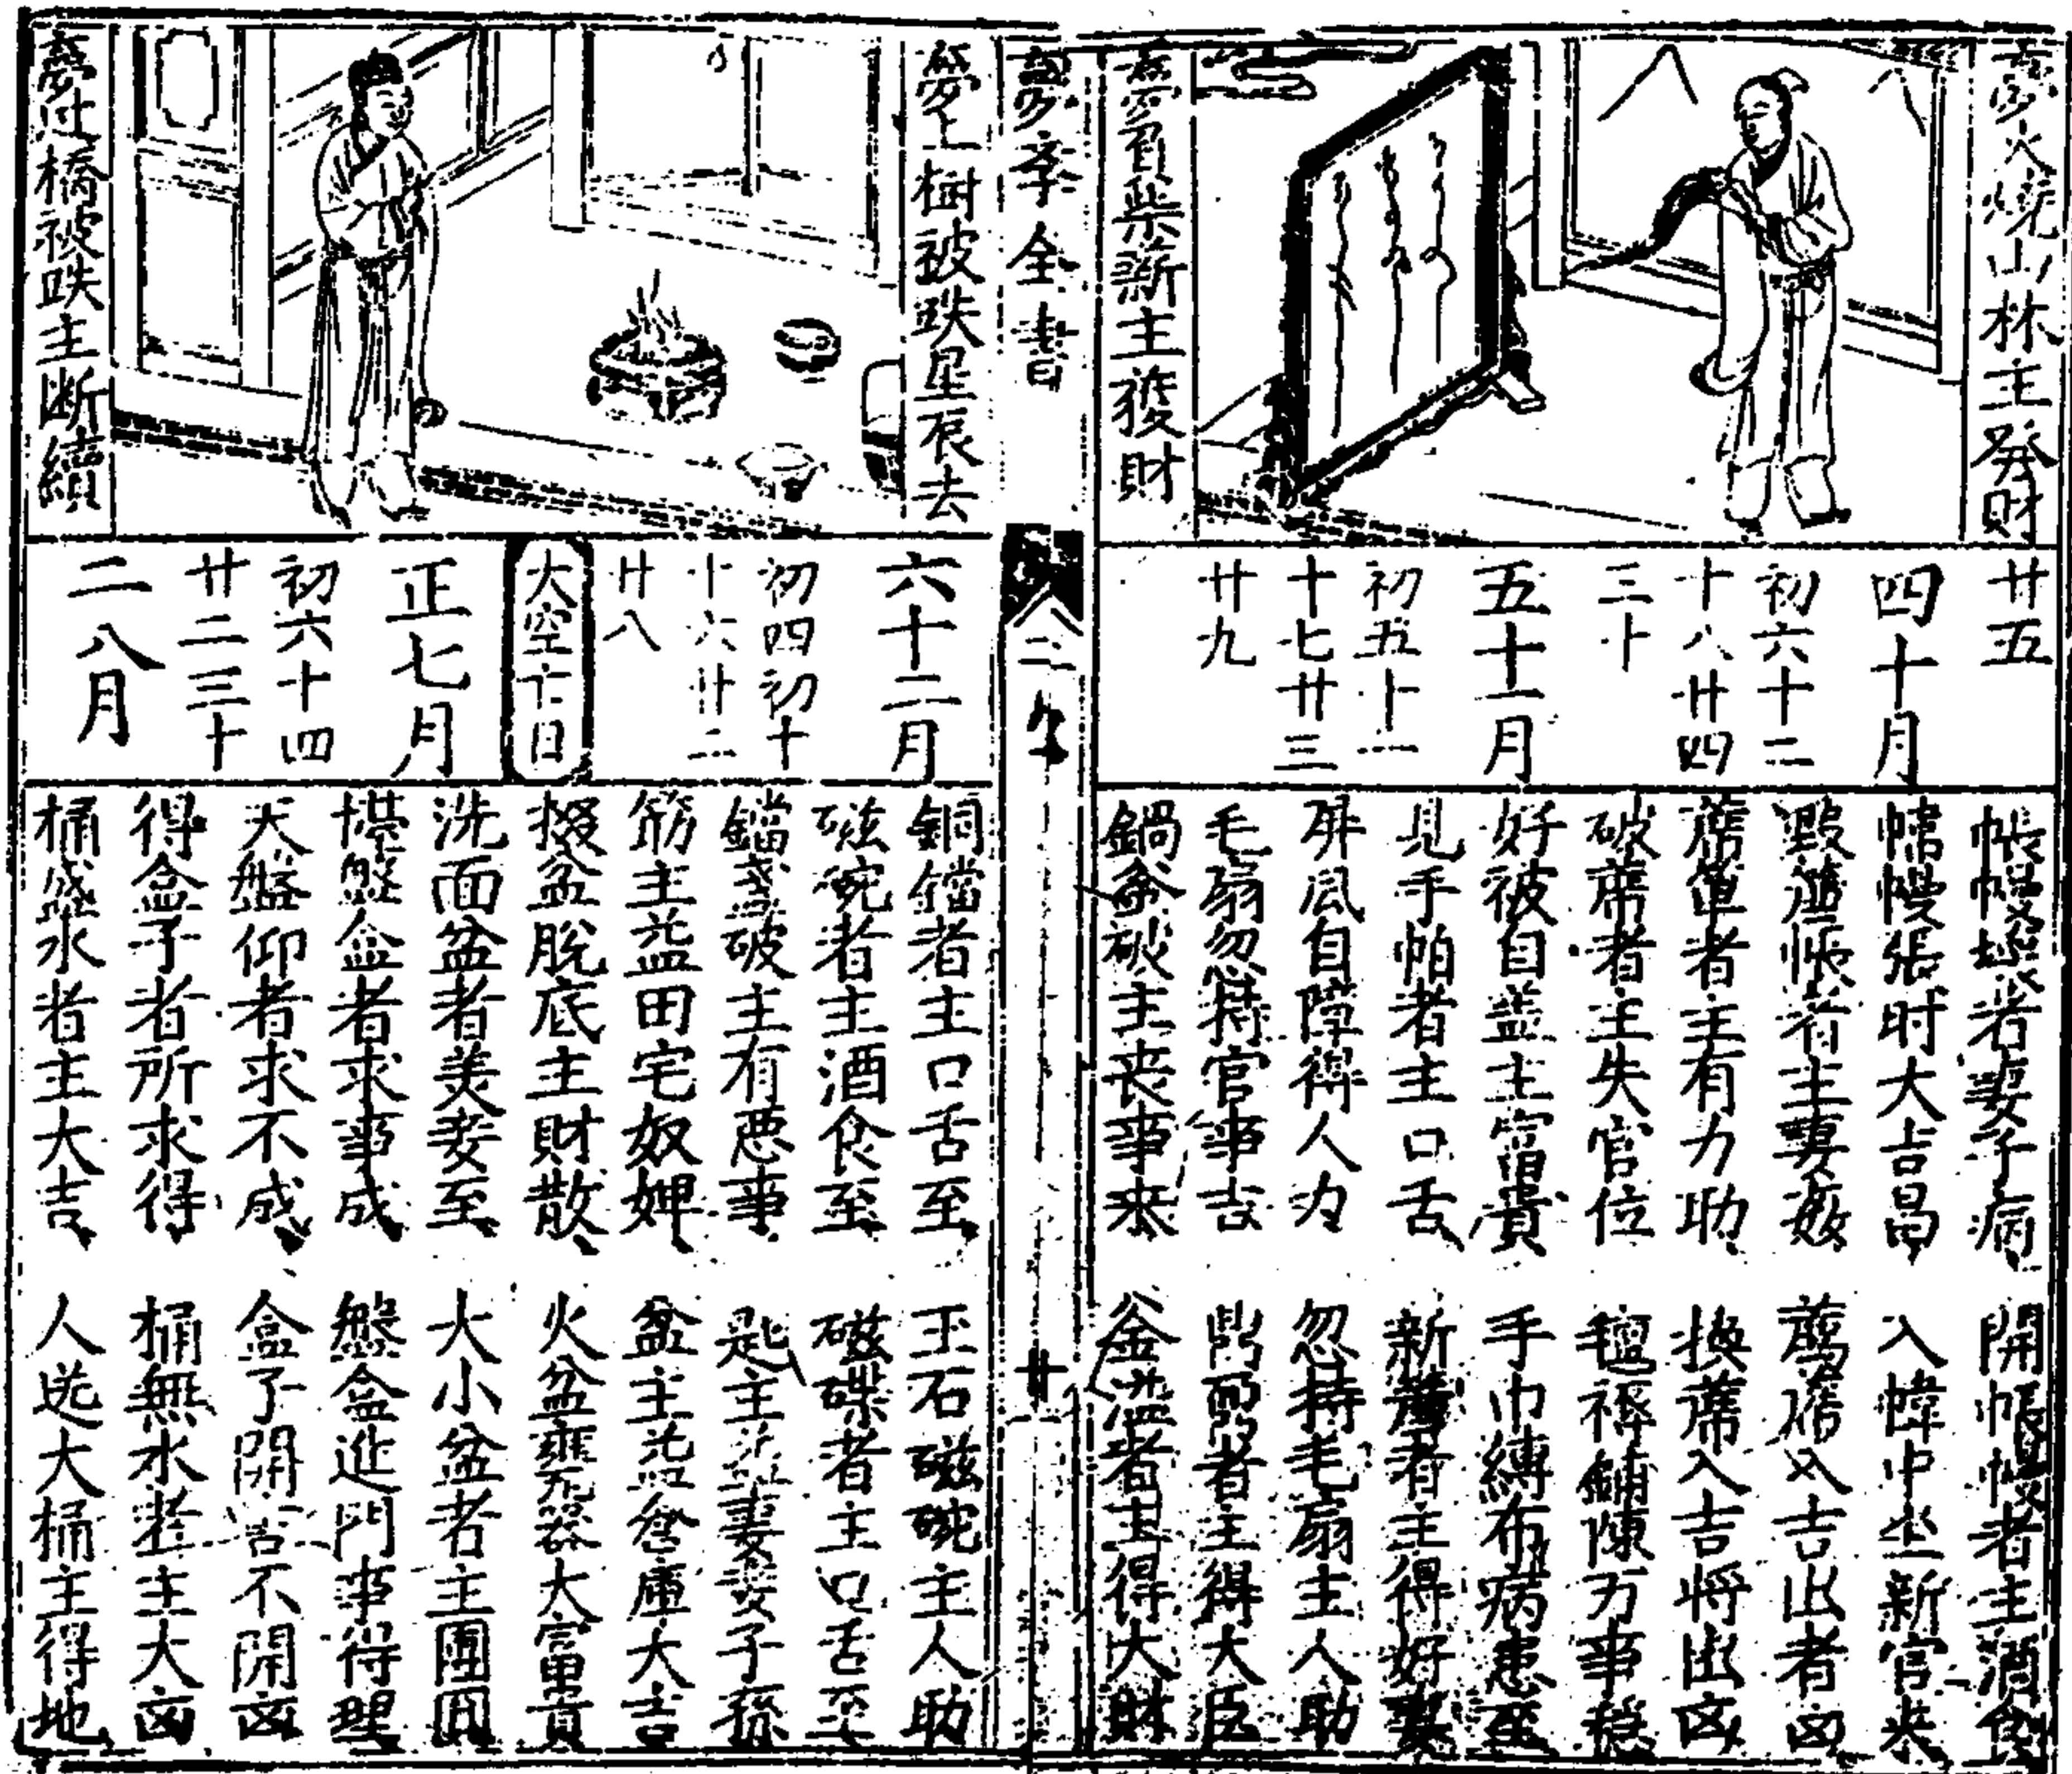 夢火燒山林主発財
夢負柴薪主發財
廿五
四十月
初六十二
十八廿四
三十
五十一月
初五十一
十七廿三
廿九
帳幔壞者妻子病
開帳幔者主酒食
幃幔張時大吉昌
入幃中坐新官來
帳者主妻姦
薦席入吉出者凶
席簟者主有力助
換蓆入吉将出凶
破蓆者主失官位
氊褥鋪陳万事穏
好被自盖主富貴
手巾縛布病患至
見手帕者主口舌
新者主得好妻
屏風自障得人力
忽持毛扇主人助
毛扇勿持官事吉
者主得大臣
鍋釜破主丧事来
釜溢者主得大財
夢李全書
二
廿
夢上樹被跌星辰去
夢過橋被跌主断續
六十二月
初四初十
十六廿二
廿八
大空亡日
正七月
初六十四
廿二三十
二八月
銅鐺者主口舌至
玉石磁碗主人助
磁碗者主酒食至
磁碟者主口舌至
鐺盞破主有悪事
匙主益妻妾子孫
筯主益田宅奴婢
盆主益倉庫大吉
掇盆脫底主財散
火盆器大富貴
洗面盆者美妾至
大小盆者主團圓
盤盒者求事成
盤盒進門事得理
天盤仰者求不成
盒子開吉不開凶
得盒子者所求得
桶無水者主大凶
桶盛水者主大吉
人送大桶主得地